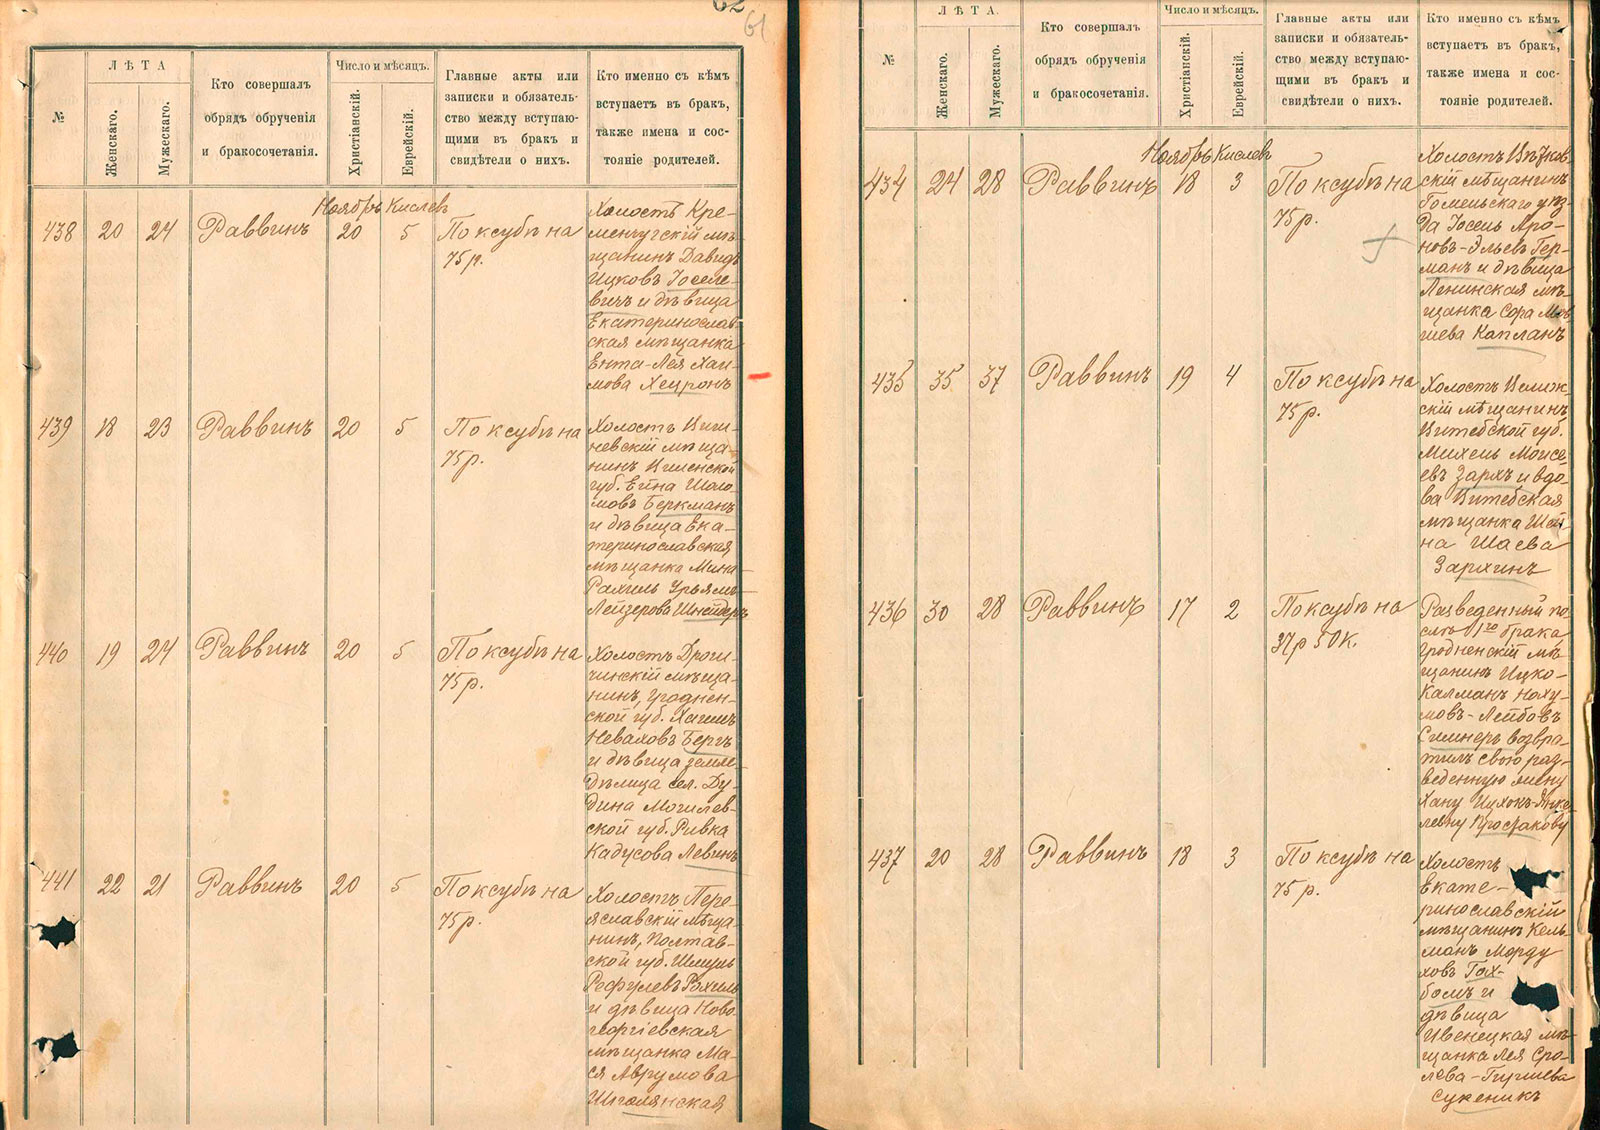 62
61
№
ЛѢТА
Женскаго.
Мужескаго.
Кто совершалъ
обрядъ обрученія
и бракосочетанія.
Число и мѣсяцъ.
Христіанскій.
Еврейскій.
Главные акты или
записки и обязатель-
ство между вступаю-
щими въ бракъ и
свидѣтели о нихъ.
Кто именно съ кѣмъ
вступаетъ въ бракъ,
также имена и сос-
тояніе родителей.
Ноябрь Кислевъ
438 20 24 Раввинъ 20 5 По ксубѣ на
75 р.
Холостъ Кре-
менчугскій мѣ-
щанинъ Давидъ
Ицковъ Іоселе-
вичъ и дѣвица
Екатеринослав-
ская мѣщанка
Ента-Лея Хаи-
мова Хецронъ
439 18 23 Раввинъ 20 5 По ксубѣ на
75 р.
Холостъ
мѣща-
нинъ Виленской
губ.
мовъ Беркманъ
и дѣвица Ека-
теринославская
мѣщанка
Рахиль
Лейзерова Шнейдеръ
440 19 24 Раввинъ 20 5 По ксубѣ на
75 р.
Холостъ Дроги-
чинскій мѣща-
нинъ, Гроднен-
ской губ.
Неваховъ Бергъ
и дѣвица земле-
дѣлица сел. Ду-
дина Могилев-
ской губ. Ривка
Кадусова Левинъ
441 22 21 Раввинъ 20 5 По ксубѣ на
75 р.
Холостъ Пере-
яславскій мѣща-
нинъ, Полтав-
ской губ. Шмуль
Рефулевъ Рахиль
и дѣвица Ново-
георгіевская
мѣщанка Ма-
ся Аврумова
Школянская
№
ЛѢТА.
Женскаго.
Мужескаго.
Кто совершалъ
обрядъ обрученія
и бракосочетанія.
Число и мѣсяцъ.
Христіанскій.
Еврейскій.
Главные акты или
записки и обязатель-
ство между вступаю-
щими въ бракъ и
свидѣтели о нихъ.
Кто именно съ кѣмъ
вступаетъ въ бракъ,
также имена и сос-
тояніе родителей.
Ноябрь Кислевъ
434 24 28 Раввинъ 18 3 По ксубѣ на
75 р.
Холостъ Вѣтков-
скій мѣщанинъ
Гомельскаго уѣз-
да Іосель Аро-
новъ-Эльевъ Гер-
манъ и дѣвица
Ленинская мѣ-
щанка Сора Мов-
шева Капланъ
435 35 37 Раввинъ 19 4 По ксубѣ на
75 р.
Холостъ Велиж-
скій мѣщанинъ
Витебской губ.
Михель Моисе-
евъ Зархъ и вдо-
ва Витебская
мѣщанка Шей-
на Шаева
Зархинъ
436 30 28 Раввинъ 17 2 По ксубѣ на
37 р 50 к.
Разведенный по-
слѣ 1го брака
Гродненскій мѣ-
щанинъ Ицко-
КалманъНоху-
мовъ-Лейбовъ
Симнеръ возвра-
тилъ свою раз-
веденную жену
Хану Ицхок-Янке-
левну Просжакову
437 20 28 Раввинъ 18 3 По ксубѣ на
75 р.
Холостъ
Екате-
ринославскій
мѣщанинъ Кель-
манъ Морду
ховъ Гох-
бомъ и
дѣвица
Ивенецкая мѣ-
щанка Лея Сро-
лева-Гиршева
Сукеникъ